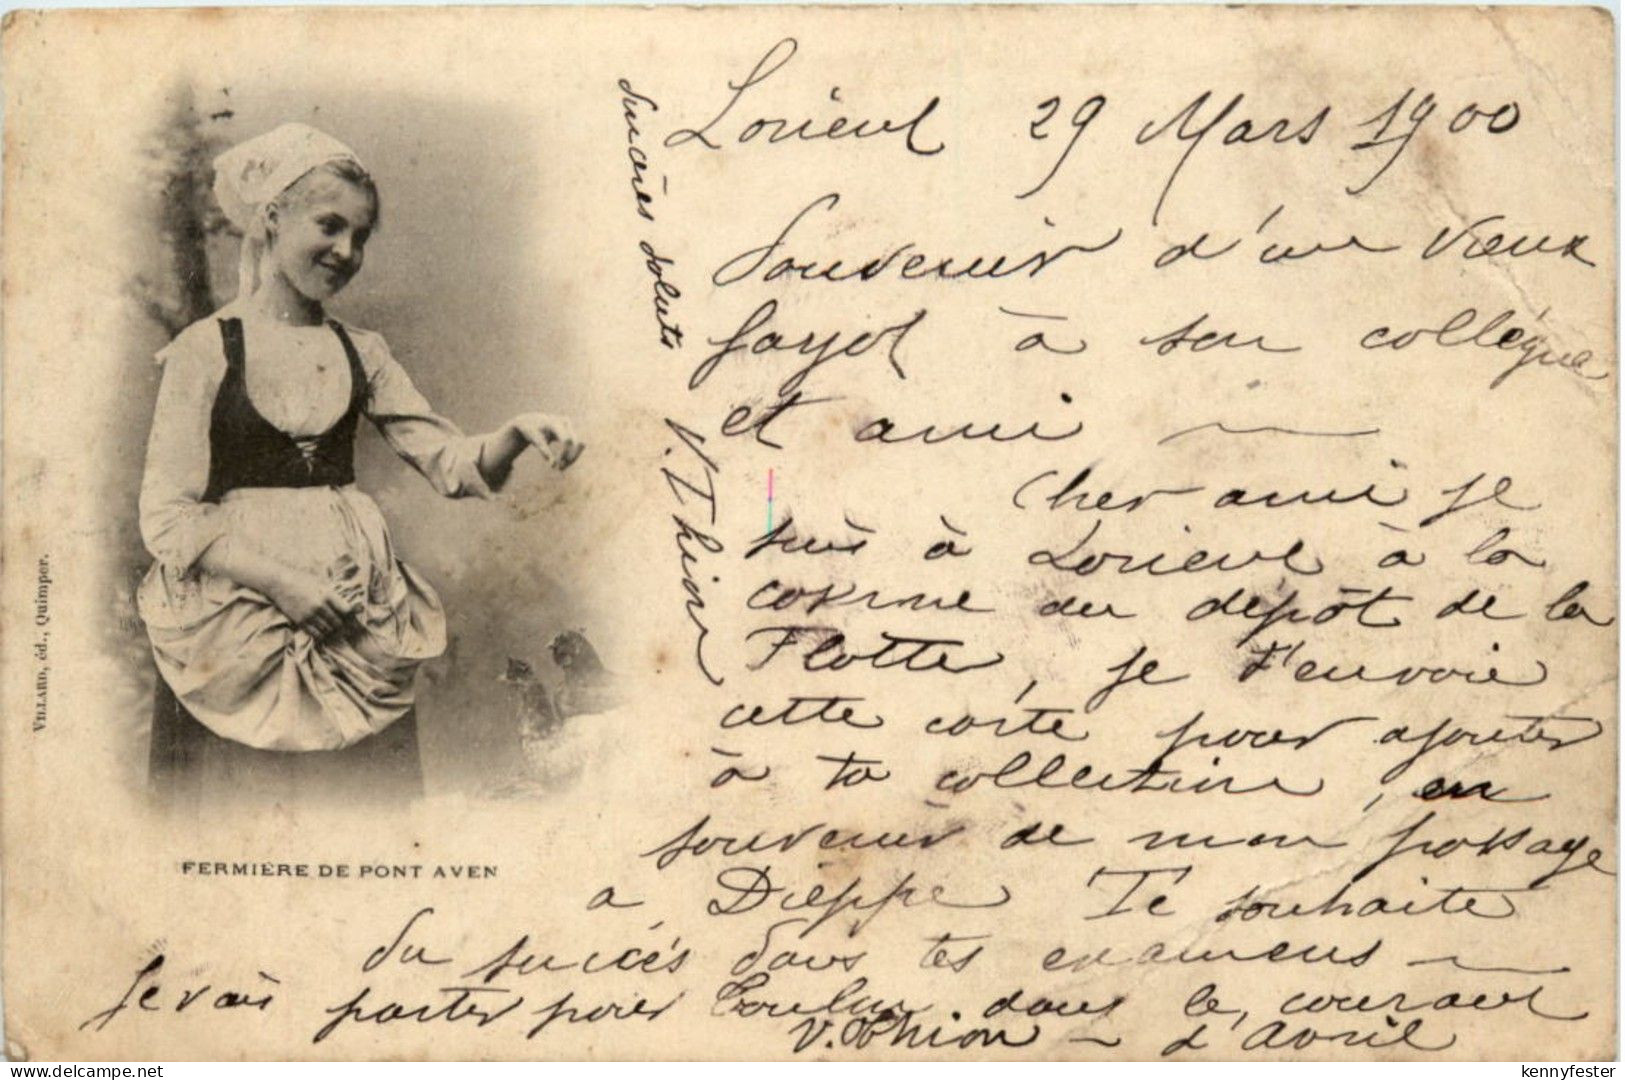 Lorient 29 Mars 1900
Souvenir d'un vieux
fayot à son collégue
et ami
Cher ami je
suis à Lorient à la
caserne du depôt de la
Flotte, je t'envoie
cette carte pour ajouter
à ta collection, en
souvenir de mon passage
a Dieppe Te souhaite
du succés dans tes examens
Je vais partir pour Toulon dans le courant
V. Thion d'Avril
Sincères saluts
V. Thion
VILLARD, éd., Quimper.
FERMIÈRE DE PONT AVEN
kennyfester